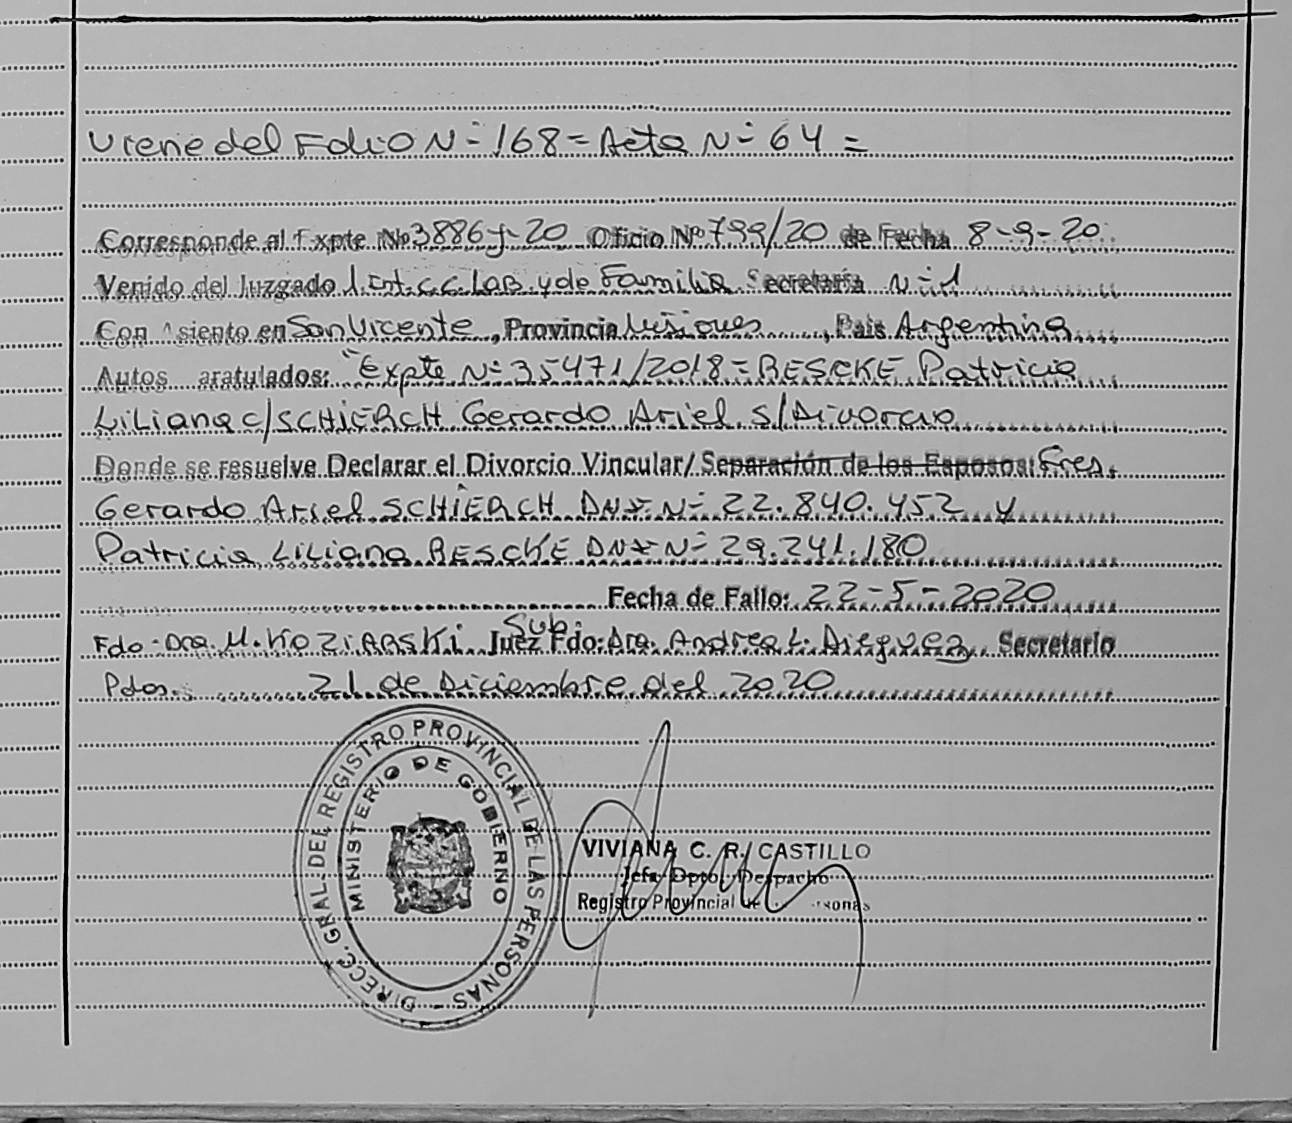 Viene del Folio Nº 168 = Acta Nº 64 =
Corresponde al Expte Nº 3886-J-20 Oficio Nº 799/20 de Fecha 8-9-20.
Venido del Juzgado 1.Inst.C.C.LAB. y de Familia Secretaría Nº 1
Con Asiento en San Vicente, Provincia Misiones, País Argentina
Autos caratulados: "Expte Nº 35471/2018 = RESCKE Patricia
Liliana c/SCHiERCH Gerardo Ariel s/Divorcio
Donde se resuelve Declarar el Divorcio Vincular/ Separación de los Esposos: Sres.
Gerardo Ariel SCHiERCH DNI Nº 22.840.452 y
Patricia Liliana RESCKE DNI Nº 29.241.180
Fecha de Fallo: 22-5-2020
Sub.
Fdo: Dra. M. KOZIARSKi Juez Fdo: Dra. Andrea L. Dieguez Secretario
Pdas. 21 de Diciembre del 2020
DIRECC. GRAL. DEL REGISTRO PROVINCIAL DE LAS PERSONAS -
MINISTERIO DE GOBIERNO
VIVIANA C. R. CASTILLO
Jefa Dpto. Despacho
Registro Provincial de